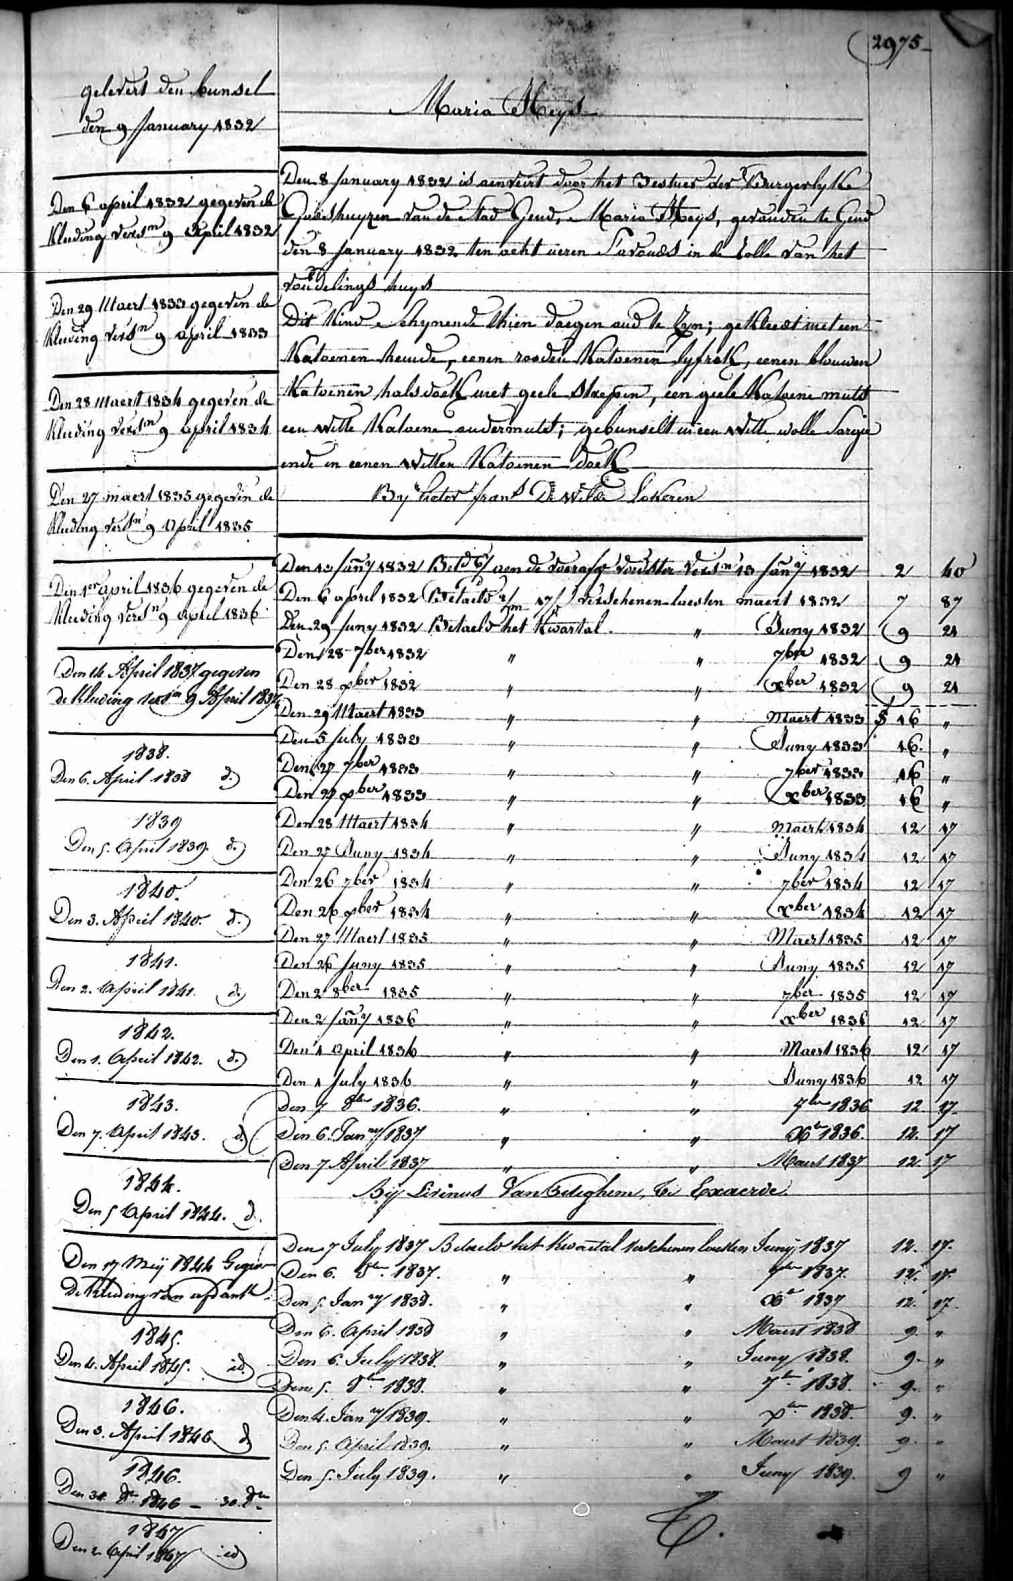 2975
gelevert den bunsel
den 9 January 1832
Den 6 april 1832 gegeven de
kleeding versn 9 April 1832
Den 29 Maert 1833 gegeven de
kleeding versn 9 april 1833
Den 28 Maert 1834 gegeven de
kleeding versn 9 april 1834
Den 27 maert 1835 gegeven de
kleeding versn 9 April 1835
Den 1er april 1836 gegeven de
kleeding versn 9 April 1836
Den 14 April 1837 gegeven
de kleeding versn 9 April 1837
1838.
Den 6. April 1838 d.
1839
Den 5. April 1839. d.
1840.
Den 3. April 1840. d.
1841.
Den 2. April 1841. d.
1842.
Den 1. April 1842. d.
1843.
Den 7. April 1843. d
1844.
Den 5 April 1844. d.
Den 17 Meij 1844 Gegeven
de kleeding van
1845.
Den 4. April 1845. id
1846.
Den 3. April 1846 d
1846.
Den 30. 8er 1846 – 30. 8er
1847
Den 2. April 1847 id
Maria Heys
Den 8 January 1832 is aenveirt door het Bestuer der Burgerlyke
Godshuyzen van de Stad Gend, Maria Heys, gevonden te Gend
den 8 January 1832 ten acht uren S'avonds in de Rolle van het
vondelings huys
Dit kind schynende thien daegen oud te zyn; gekleedt met een
katoenen hemde, eenen rooden katoenen lyfrok, eenen blouwen
katoenen halsdoek met geele streepen, een geele katoene muts
een witte katoene ondermuts; gebunselt in een witte wolle sargie
ende in eenen witten katoenen doek
By frans De Wilde Lokeren
Den 13 Jany 1832 Bet aen de voorsz voedster versn 13 Jany 1832 2 40
Den 6 april 1832 Betaeld verschenen laesten maert 1832 7 87
Den 29 Juny 1832 Betaeld het Kwartal. " Juny 1832 9 24
Den 28 7ber 1832 " " 7ber 1832 9 24
Den 28 xber 1832 " " xber 1832 9 24
Den 29 Maert 1833 " " Maert 1833 $ 16 "
Den 5 July 1833 " " Juny 1833 16. "
Den 27 7ber 1833 " " 7ber 1833 16 "
Den 27 xber 1833 " " xber 1833 16 "
Den 28 Maert 1834 " " Maert 1834 12 17
Den 27 Juny 1834 " " Juny 1834 12 17
Den 26 7ber 1834 " " 7ber 1834 12 17
Den 26 xber 1834 " " xber 1834 12 17
Den 27 Maert 1835 " " Maert 1835 12 17
Den 26 Juny 1835 " " Juny 1835 12 17
Den 2 8ber 1835 " " 7ber 1835 12 17
Den 2 Jany 1836 " " xber 1836 12 17
Den 1 April 1836 " " Maert 1836 12 17
Den 1 July 1836 " " Juny 1836 12 17
Den 7 8er 1836. " " 7er 1836 12. 17.
Den 6. Jany 1837 " " Xr 1836. 12. 17
Den 7 April 1837 " " Maert 1837 12. 17
Bij Livinus Van Geleghem, te Exaerde.
Den 7 July 1837 Betaeld het Kwartal verschenen laesten Junij 1837 12. 17.
Den 6. 8er 1837. " " 7er 1837. 12. 17.
Den 5. Jany 1838. " " Xr 1837 12. 17.
Den 6. April 1838 " " Maert 1838 9. "
Den 6. July 1838. " " Juny 1838. 9. "
Den 5. 8er 1838. " " 7er 1838. 9. "
Den 4. Jany 1839. " " xer 1838. 9. "
Den 5. April 1839. " " Maert 1839. 9. "
Den 5. July 1839. " " Juny 1839. 9 "
T.